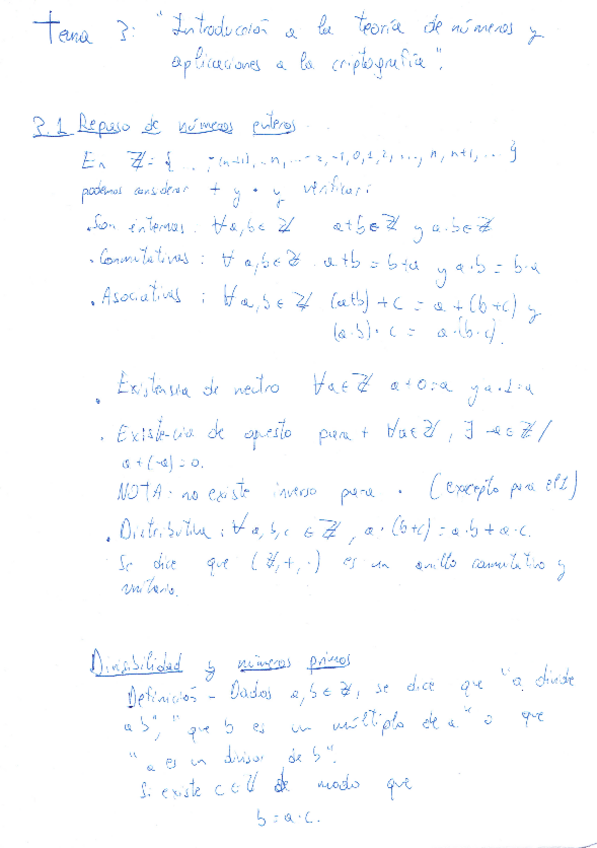 Tema 3: "Introducción a la teoría de números y
aplicaciones a la criptografía".
3.1 Repaso de números enteros.
En ℤ = { ... , -(n+1), -n, ... -2, -1, 0, 1, 2, ..., n, n+1, ... }
podemos considerar + y · y verifican:
. Son internas: ∀ a, b ∈ ℤ a+b ∈ ℤ y a·b ∈ ℤ
. Conmutativas: ∀ a, b ∈ ℤ a+b = b+a y a·b = b·a
. Asociativas: ∀ a, b ∈ ℤ (a+b)+c = a+(b+c) y
(a·b)·c = a·(b·c).
. Existencia de neutro ∀a∈ℤ a+0=a y a·1=a
. Existencia de opuesto para + ∀a∈ℤ, ∃ -a∈ℤ /
a+(-a)=0.
NOTA· no existe inverso para · (excepto para el 1)
. Distributiva: ∀ a, b, c ∈ ℤ, a·(b+c) = a·b + a·c.
Se dice que (ℤ, +, ·) es un anillo conmutativo y
unitario.
Divisibilidad y números primos
Definición - Dados a, b ∈ ℤ, se dice que "a divide
a b", "que b es un múltiplo de a" o que
"a es un divisor de b".
Si existe c ∈ ℤ de modo que
b = a·c.